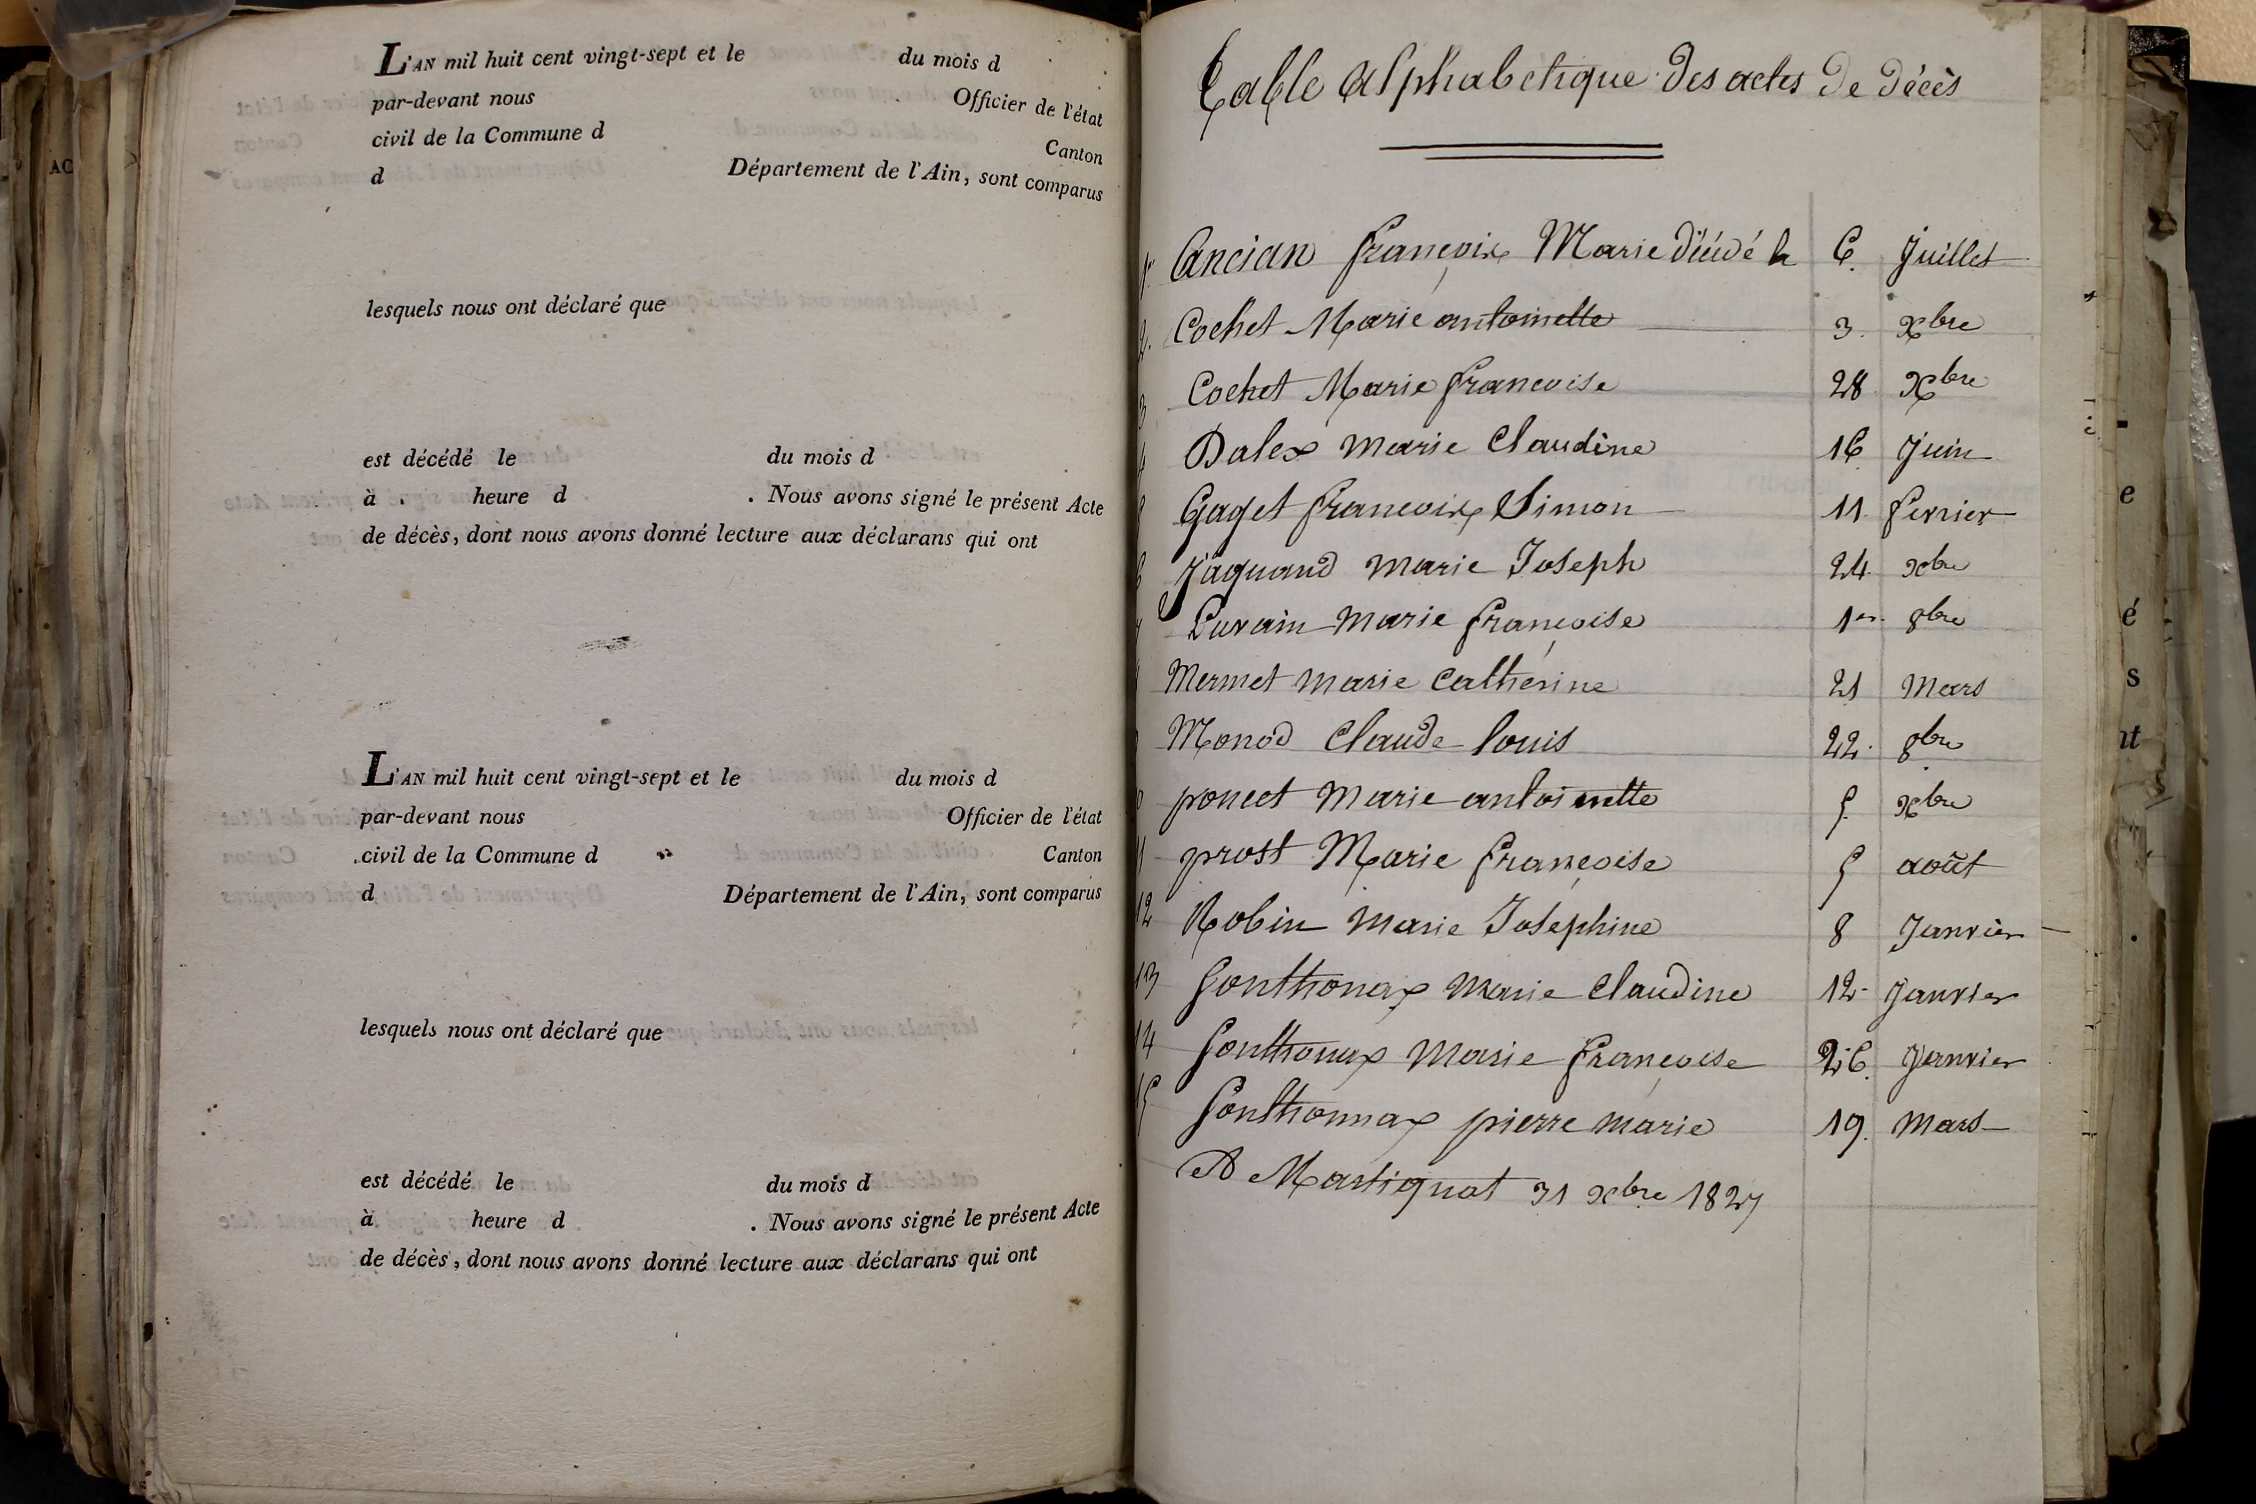 L'AN mil huit cent vingt-sept et le du mois d
par-devant nous Officier de l'état
civil de la Commune d Canton
d Département de l'Ain, sont comparus
lesquels nous ont déclaré que
est décédé le du mois d
à heure d . Nous avons signé le présent Acte
de décès, dont nous avons donné lecture aux déclarans qui ont
L'AN mil huit cent vingt-sept et le du mois d
par-devant nous Officier de l'état
civil de la Commune d Canton
d Département de l'Ain, sont comparus
lesquels nous ont déclaré que
est décédé le du mois d
à heure d . Nous avons signé le présent Acte
de décès, dont nous avons donné lecture aux déclarans qui ont
Table alphabetique des actes de décès
1er Ancian françoix Marie décédé le 6. Juillet
2. Cochet Marie antoinette 3. xbre
3 Cochet Marie francoise 28 xbre
4 Dalex marie Claudine 16 Juin
Gaget francoix Simon 11. fevrier
6 Jaquand marie Joseph 24. xbre
7 Luvain marie françoise 1er. 8bre
Mermet marie Catherine 21 Mars
Monod Claude louis 22. 8bre
poncet marie antoinette 5. xbre
11 prost Marie françoise 5 août
12 Robin marie Josephine 8 Janvier
13 Gonthonax marie Claudine 12 Janvier
14 Gonthonax marie françoise 26. Janvier
15 Gonthonnax pierre marie 19. Mars
A Martignat 31 xbre 1827
AC
e
é
s
nt